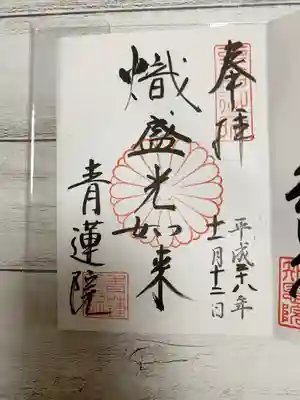 奉拝
平成二十八年
十一月十二日
熾盛光如来
青蓮院